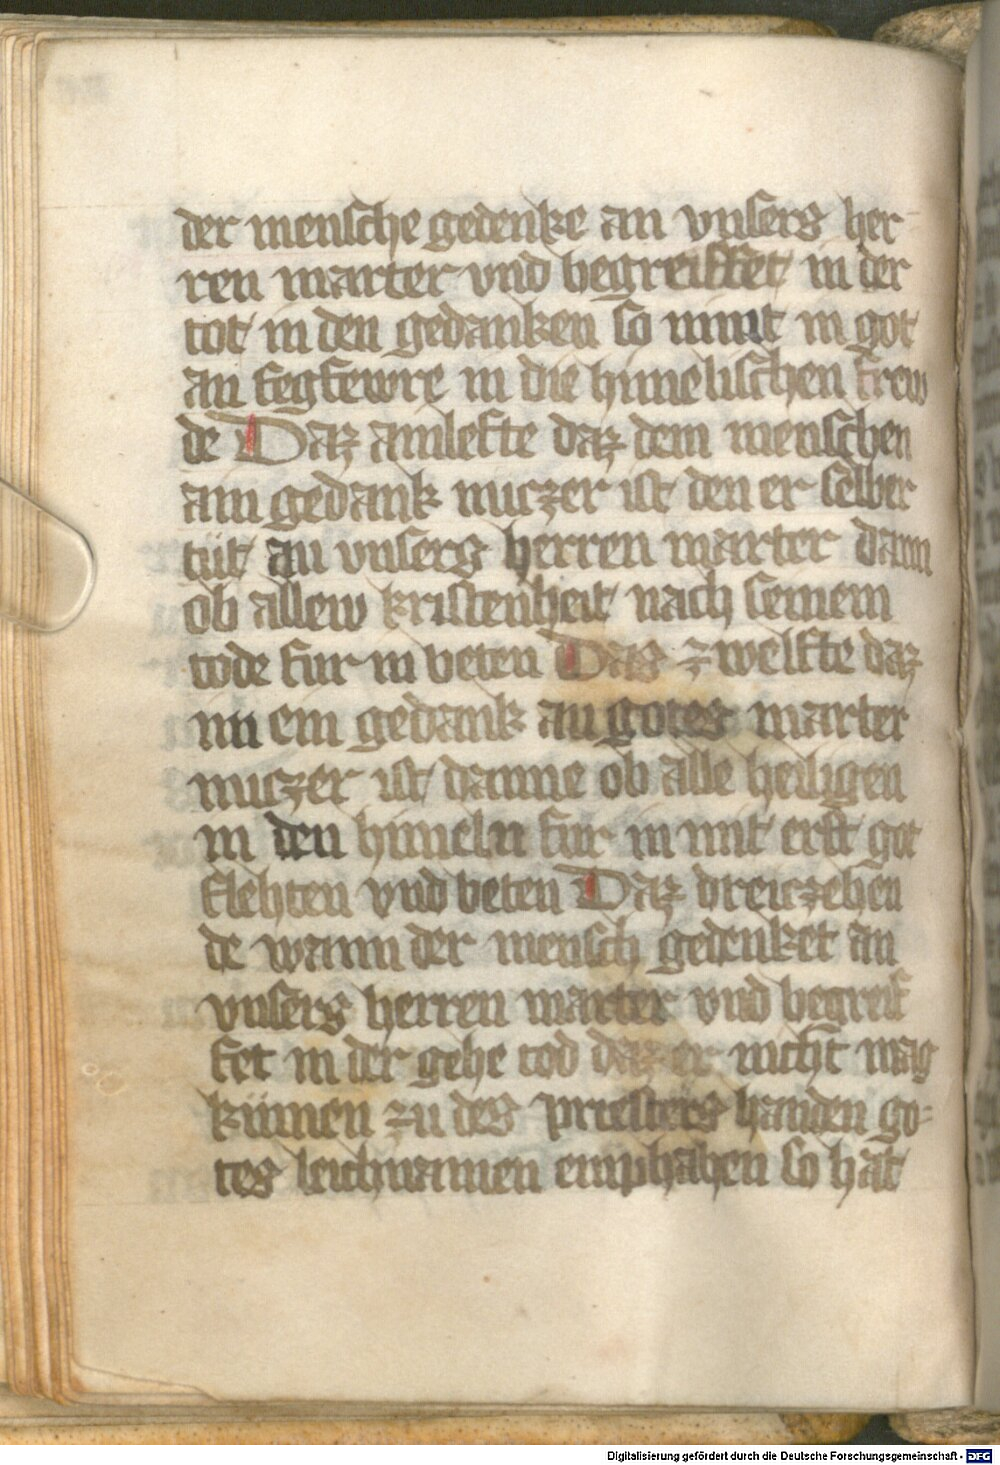 der mensche gedenke an vnsers her
ren marter vnd begreiffet in der
tot in den gedanken so nimt in got
an fegfewre in die himelischen frew
de Daz ainlefte daz dem menschen
ain gedank nuczer ist den er selber
tüt an vnsers herren marter dann
ob allew kristenheit nach seinem
tode fur in beten Daz zwelfte daz
im ein gedank an gotes marter
nuczer ist danne ob alle heiligen
in den himeln fur in mit erst got
flehten vnd beten Daz dreiczehen
de wann der mensch gedenket an
vnsers herren marter vnd begreif
fet in der gehe tod daz er nicht mag
kümen zu des priesters handen go=
tes leichnamen emphahen so hat
Digitalisierung gefördert durch die Deutsche Forschungsgemeinschaft - DFG